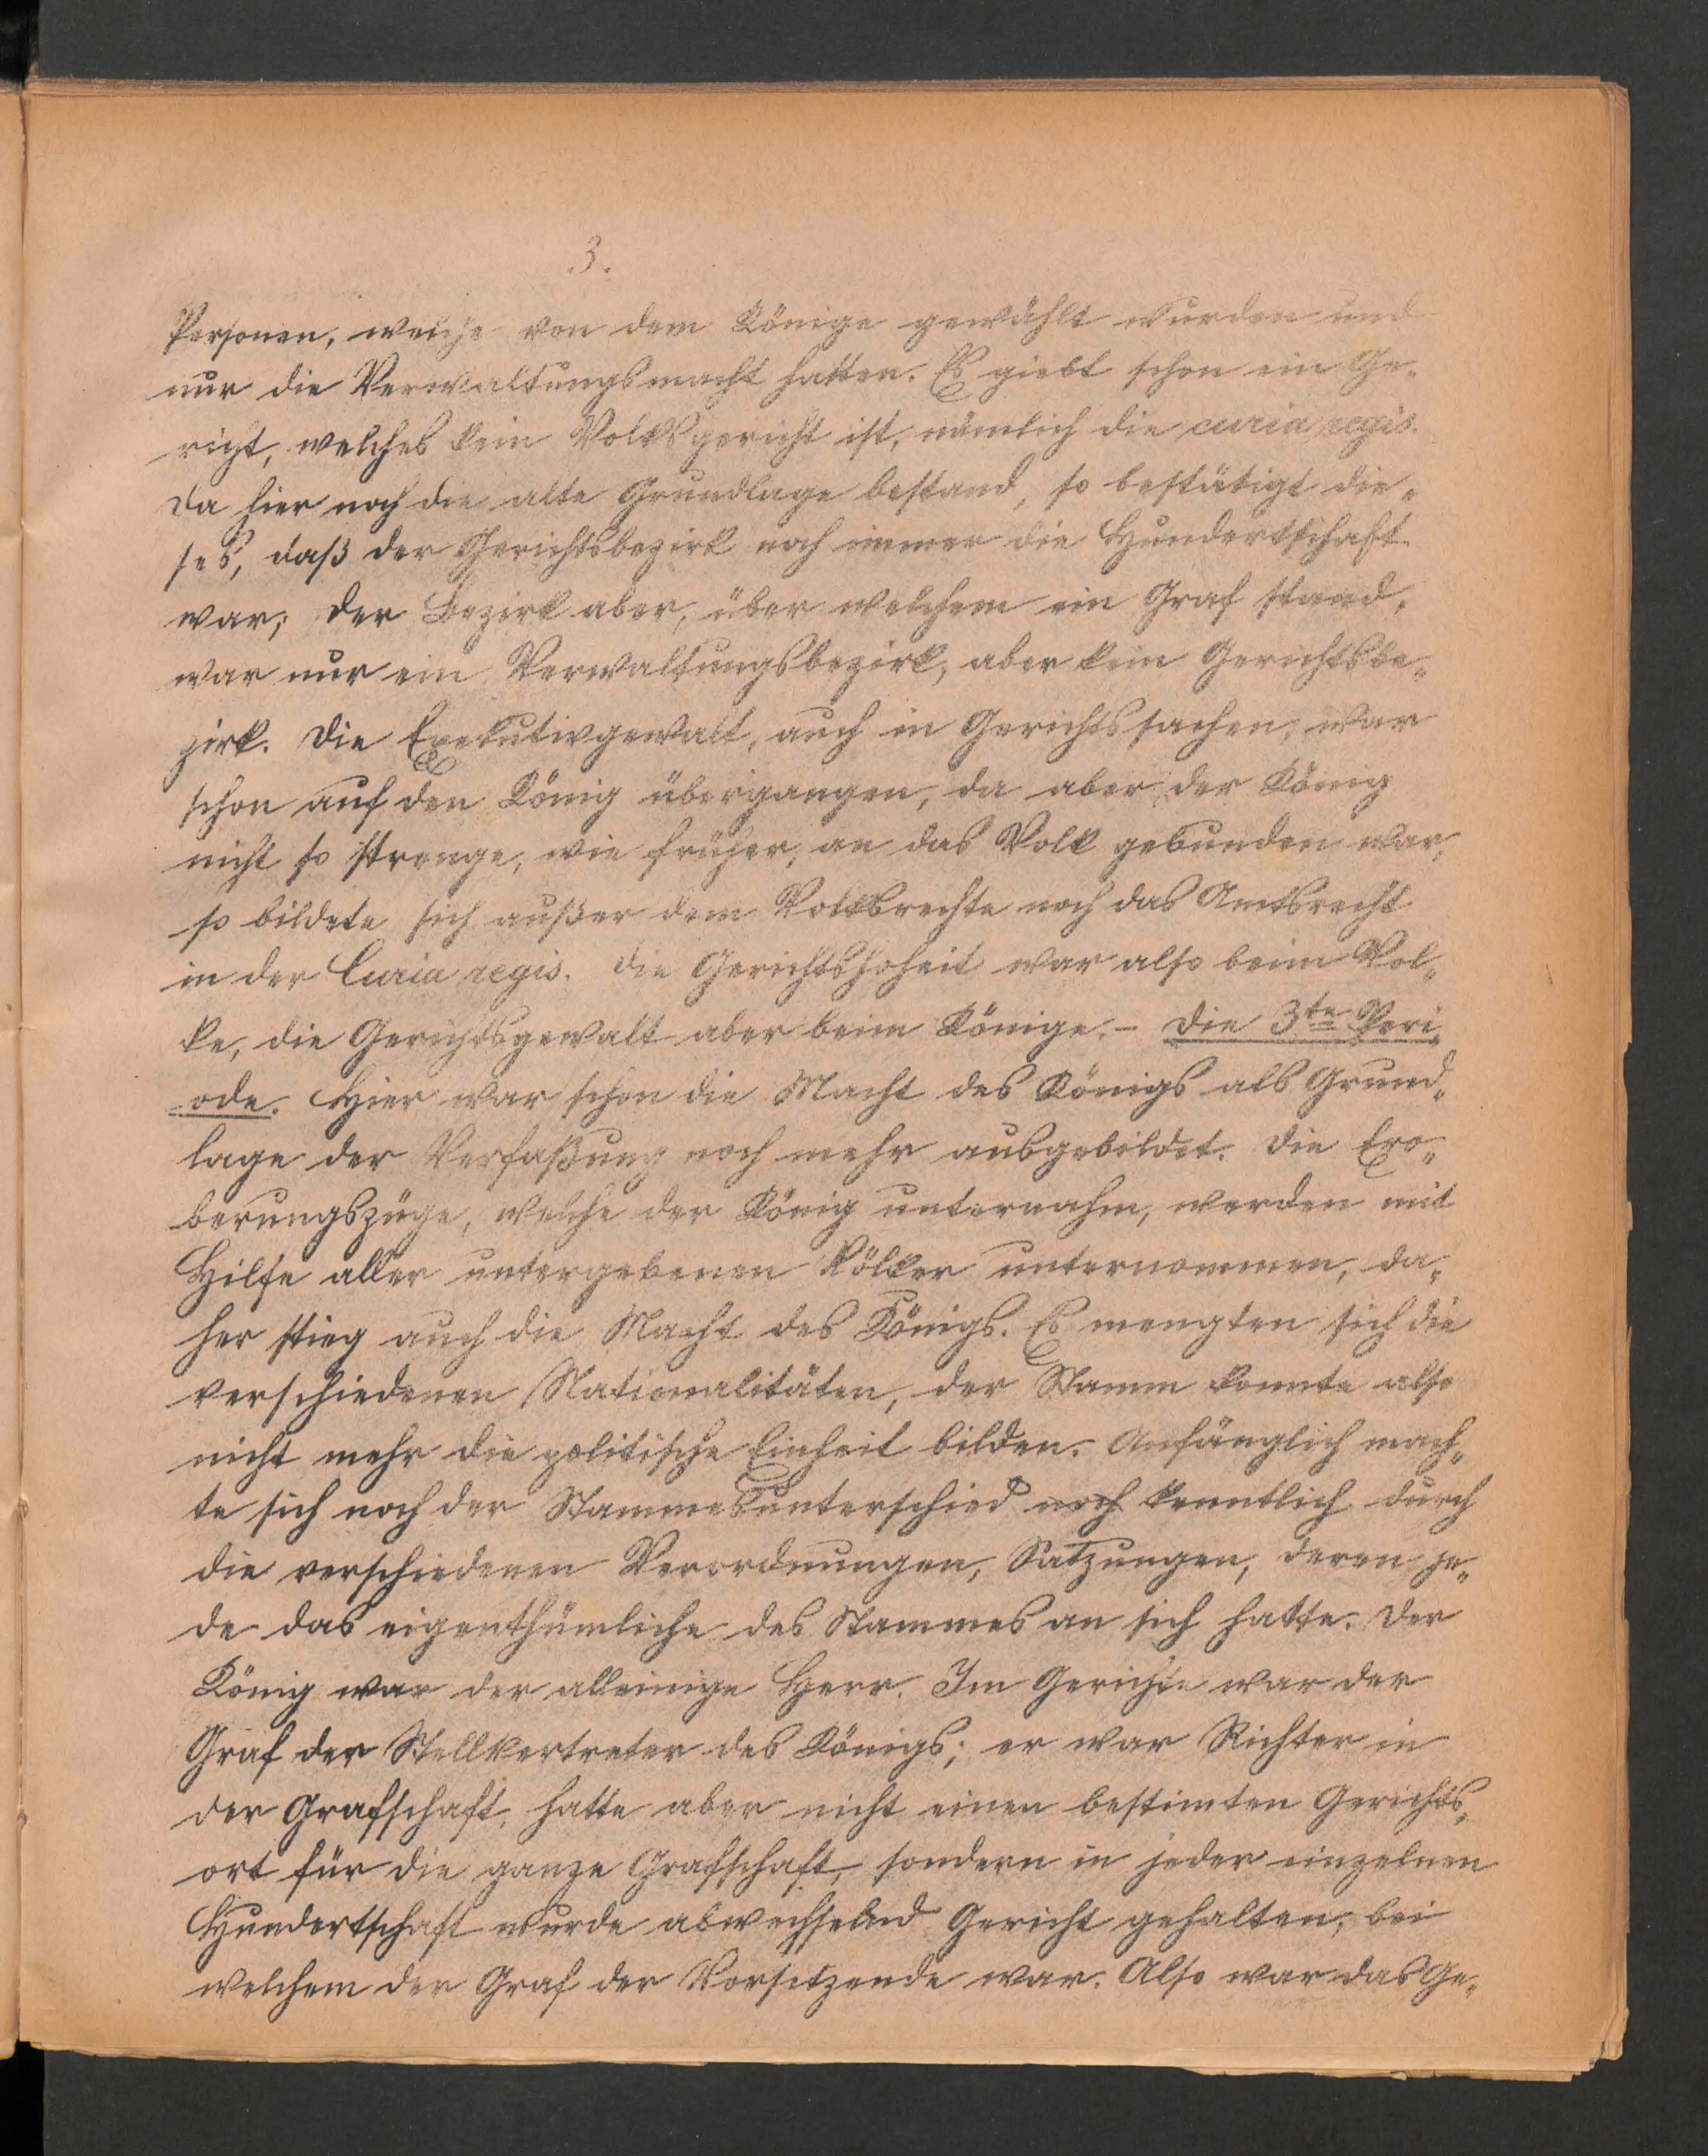 3.
Personen, welche von dem Könige gewählt wurden und
nur die Verwaltungsmacht hatten. Es giebt schon ein Ge-
richt, welches kein Volksgericht ist, nämlich die curia regis.
Da hier noch die alte Grundlage bestand, so bestätigt die-
ses, daß der Gerichtsbezirk noch immer die Hundertschaft
war; der Bezirk aber, über welchem ein Graf stand,
war nur ein Verwaltungsbezirk, aber kein Gerichtsbe-
zirk. Die Exekutivgewalt, auch in Gerichtssachen, war
schon auf den König übergangen, da aber der König
nicht so strenge, wie früher, an das Volk gebunden war,
so bildete sich außer dem Volksrechte noch das Amtsrecht
in der Curia regis. Die Gerichtshoheit war also beim Vol-
ke, die Gerichtsgewalt aber beim Könige. - Die 3te Peri-
ode. Hier war schon die Macht des Königs als Grund-
lage der Verfaßung noch mehr ausgebildet. Die Ero-
berungszüge, welche der König unternahm, werden mit
Hilfe aller untergebenen Völker unternommen, da-
her stieg auch die Macht des Königs. Es mengten sich die
verschiedenen Nationalitäten, der Stamm konnte also
nicht mehr die politische Einheit bilden. Anfänglich mach-
te sich noch der Stammesunterschied noch kenntlich durch
die verschiedenen Verordnungen, Satzungen, deren je-
de das eigenthümliche des Stammes an sich hatte. Der
König war der alleinige Herr. Im Gerichte war der
Graf der Stellvertreter des Königs; er war Richter in
der Grafschaft, hatte aber nicht einen bestimten Gerichts-
ort für die ganze Grafschaft, sondern in jeder einzelnen
Hundertschaft wurde abwechselnd Gericht gehalten, bei
welchem der Graf der Vorsitzende war. Also war das Ge-